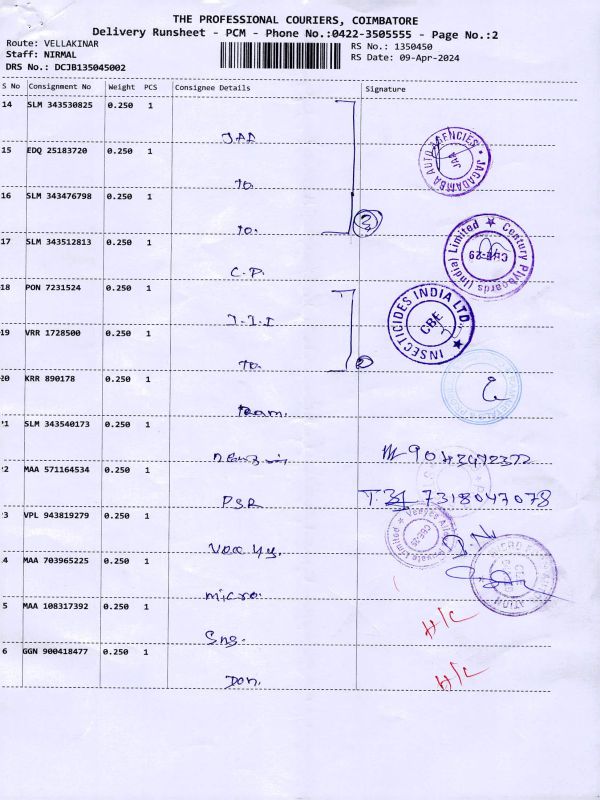 THE PROFESSIONAL COURIERS, COIMBATORE
Delivery Runsheet - PCM - Phone No.:0422-3505555 - Page No.:2
Route: VELLAKINAR
RS No.: 1350450
Staff: NIRMAL
RS Date: 09-Apr-2024
DRS No.: DCJB135045002
S No Consignment No Weight PCS Consignee Details Signature
14 SLM 343530825 0.250 1
JAA
JAGADAMBA AUTO AGENCIES
JAA
15 EDQ 25183720 0.250 1
To.
16 SLM 343476798 0.250 1
To.
3
17 SLM 343512813 0.250 1
C.P.
Century Plyboards (India) Limited
CBE-29
18 PON 7231524 0.250 1
I.I.I
INSECTICIDES INDIA LTD.
CBE
19 VRR 1728500 0.250 1
To.
2
20 KRR 890178 0.250 1
Ram.
21 SLM 343540173 0.250 1
M 9043472322
2 MAA 571164534 0.250 1
PSR
7318047078
3 VPL 943819279 0.250 1
Vee yy.
4 MAA 703965225 0.250 1
micro.
5 MAA 108317392 0.250 1
Sng.
H/C
6 GGN 900418477 0.250 1
Don.
H/C